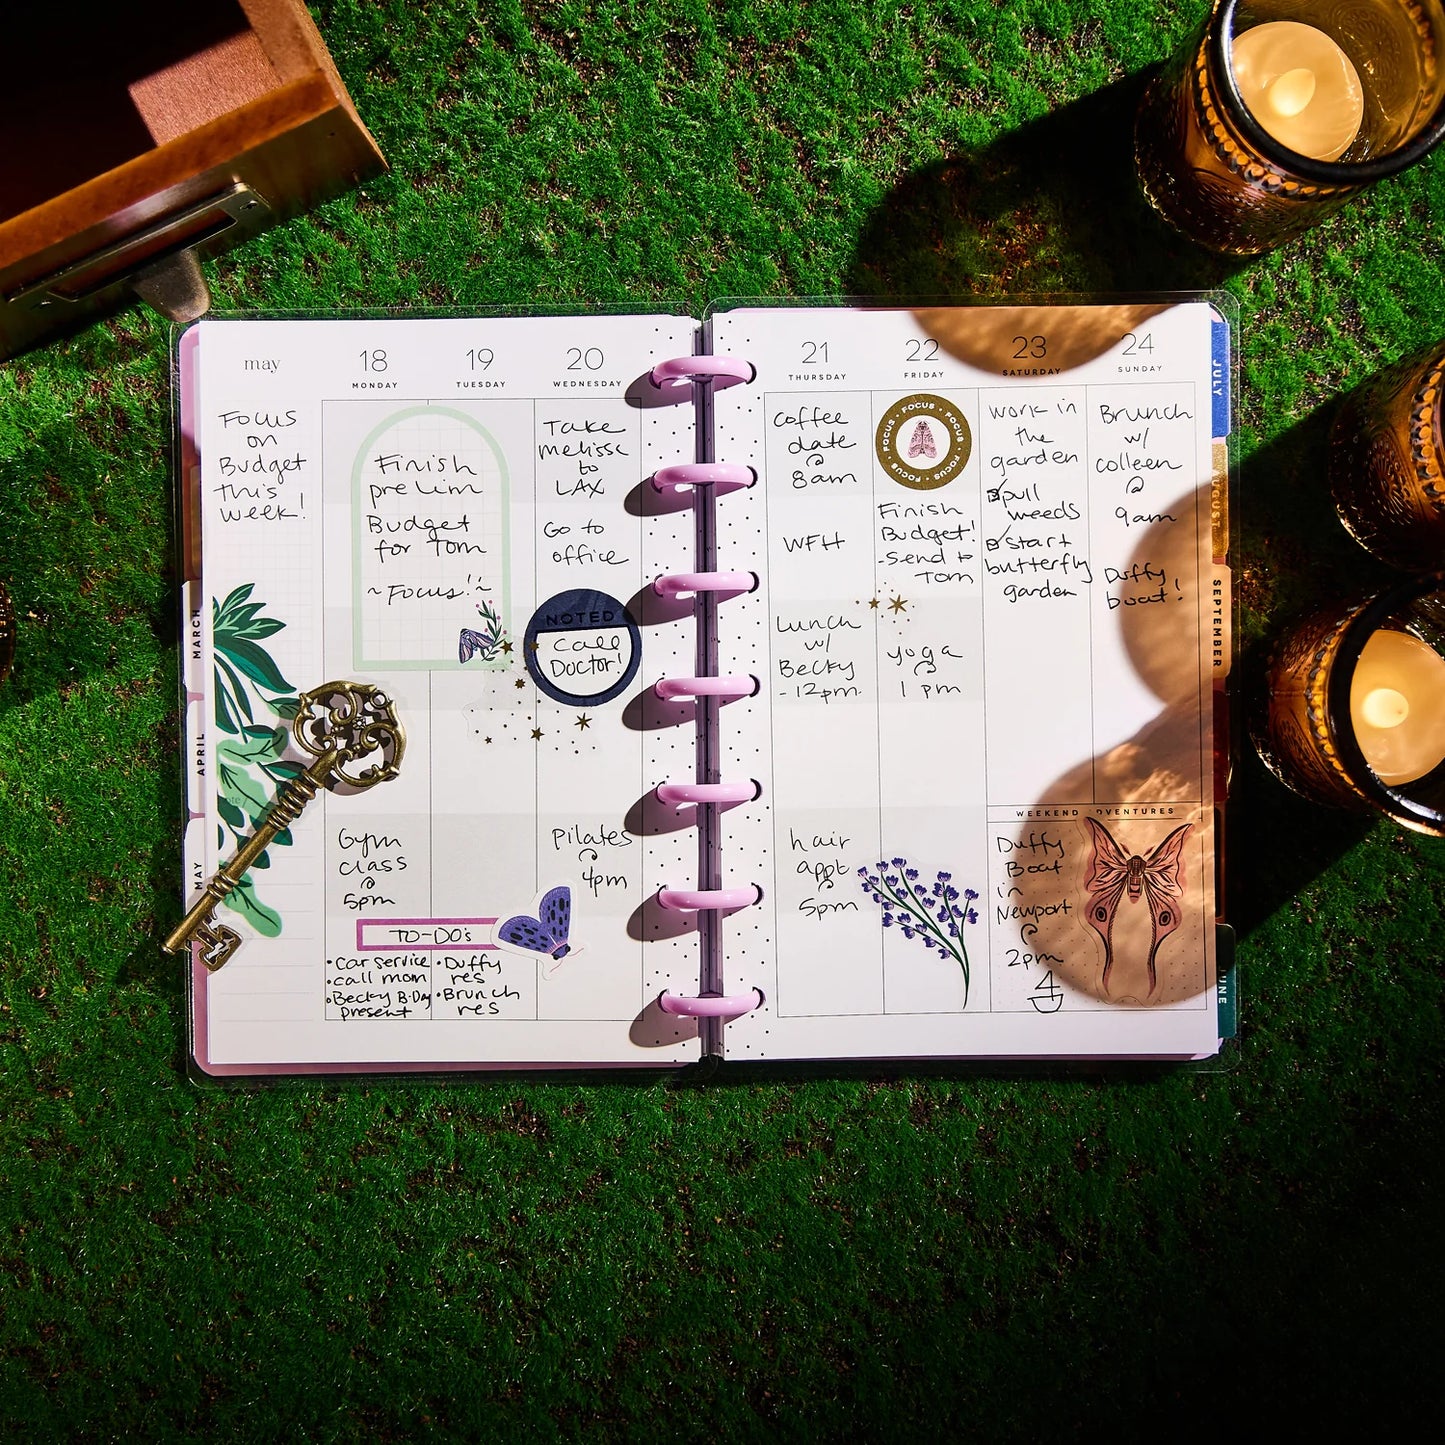 may
Focus
on
Budget
this
week!
18
MONDAY
19
TUESDAY
20
WEDNESDAY
Finish
prelim
Budget
for Tom
~Focus!~
Take
melissa
to
LAX
Go to
office
NOTED
Call
Doctor!
Gym
class
@
5pm
Pilates
@
4pm
TO-DO's
•Car service
•call mom
•Becky B-Day
present
•Duffy
res
•Brunch
res
MARCH
APRIL
MAY
21
THURSDAY
22
FRIDAY
23
SATURDAY
24
SUNDAY
coffee
date
@
8am
WFH
Lunch
w/
Becky
-12pm
hair
appt
@
5pm
FOCUS • FOCUS • FOCUS • FOCUS • FOCUS •
Finish
Budget!
-send to
Tom
yoga
@
1 pm
work in
the
garden
pull
weeds
start
butterfly
garden
Brunch
w/
colleen
@
9am
Duffy
boat!
WEEKEND ADVENTURES
Duffy
Boat
in
Newport
@
2pm
JULY
AUGUST
SEPTEMBER
JUNE